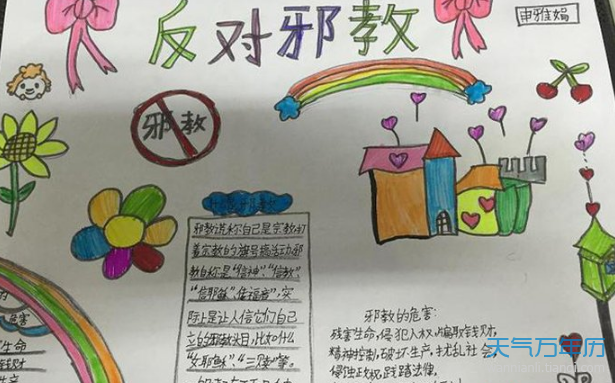 反对邪教
申雅娟
邪教
邪教谎称自己是宗教,打
着宗教的旗号搞活动邪
教自称是“信神”、“信教”、
“信耶稣”、“信福音”,实
际上是让人信它们自己
立的邪教教目,比如什么
“女耶稣”、“三赎”等。
邪教的危害:
残害生命,侵犯人权,骗取钱财,
精神控制,破坏生产,扰乱社会,
侵蚀政权,践踏法律,
危害
生命
钱财
生产
天气万年历